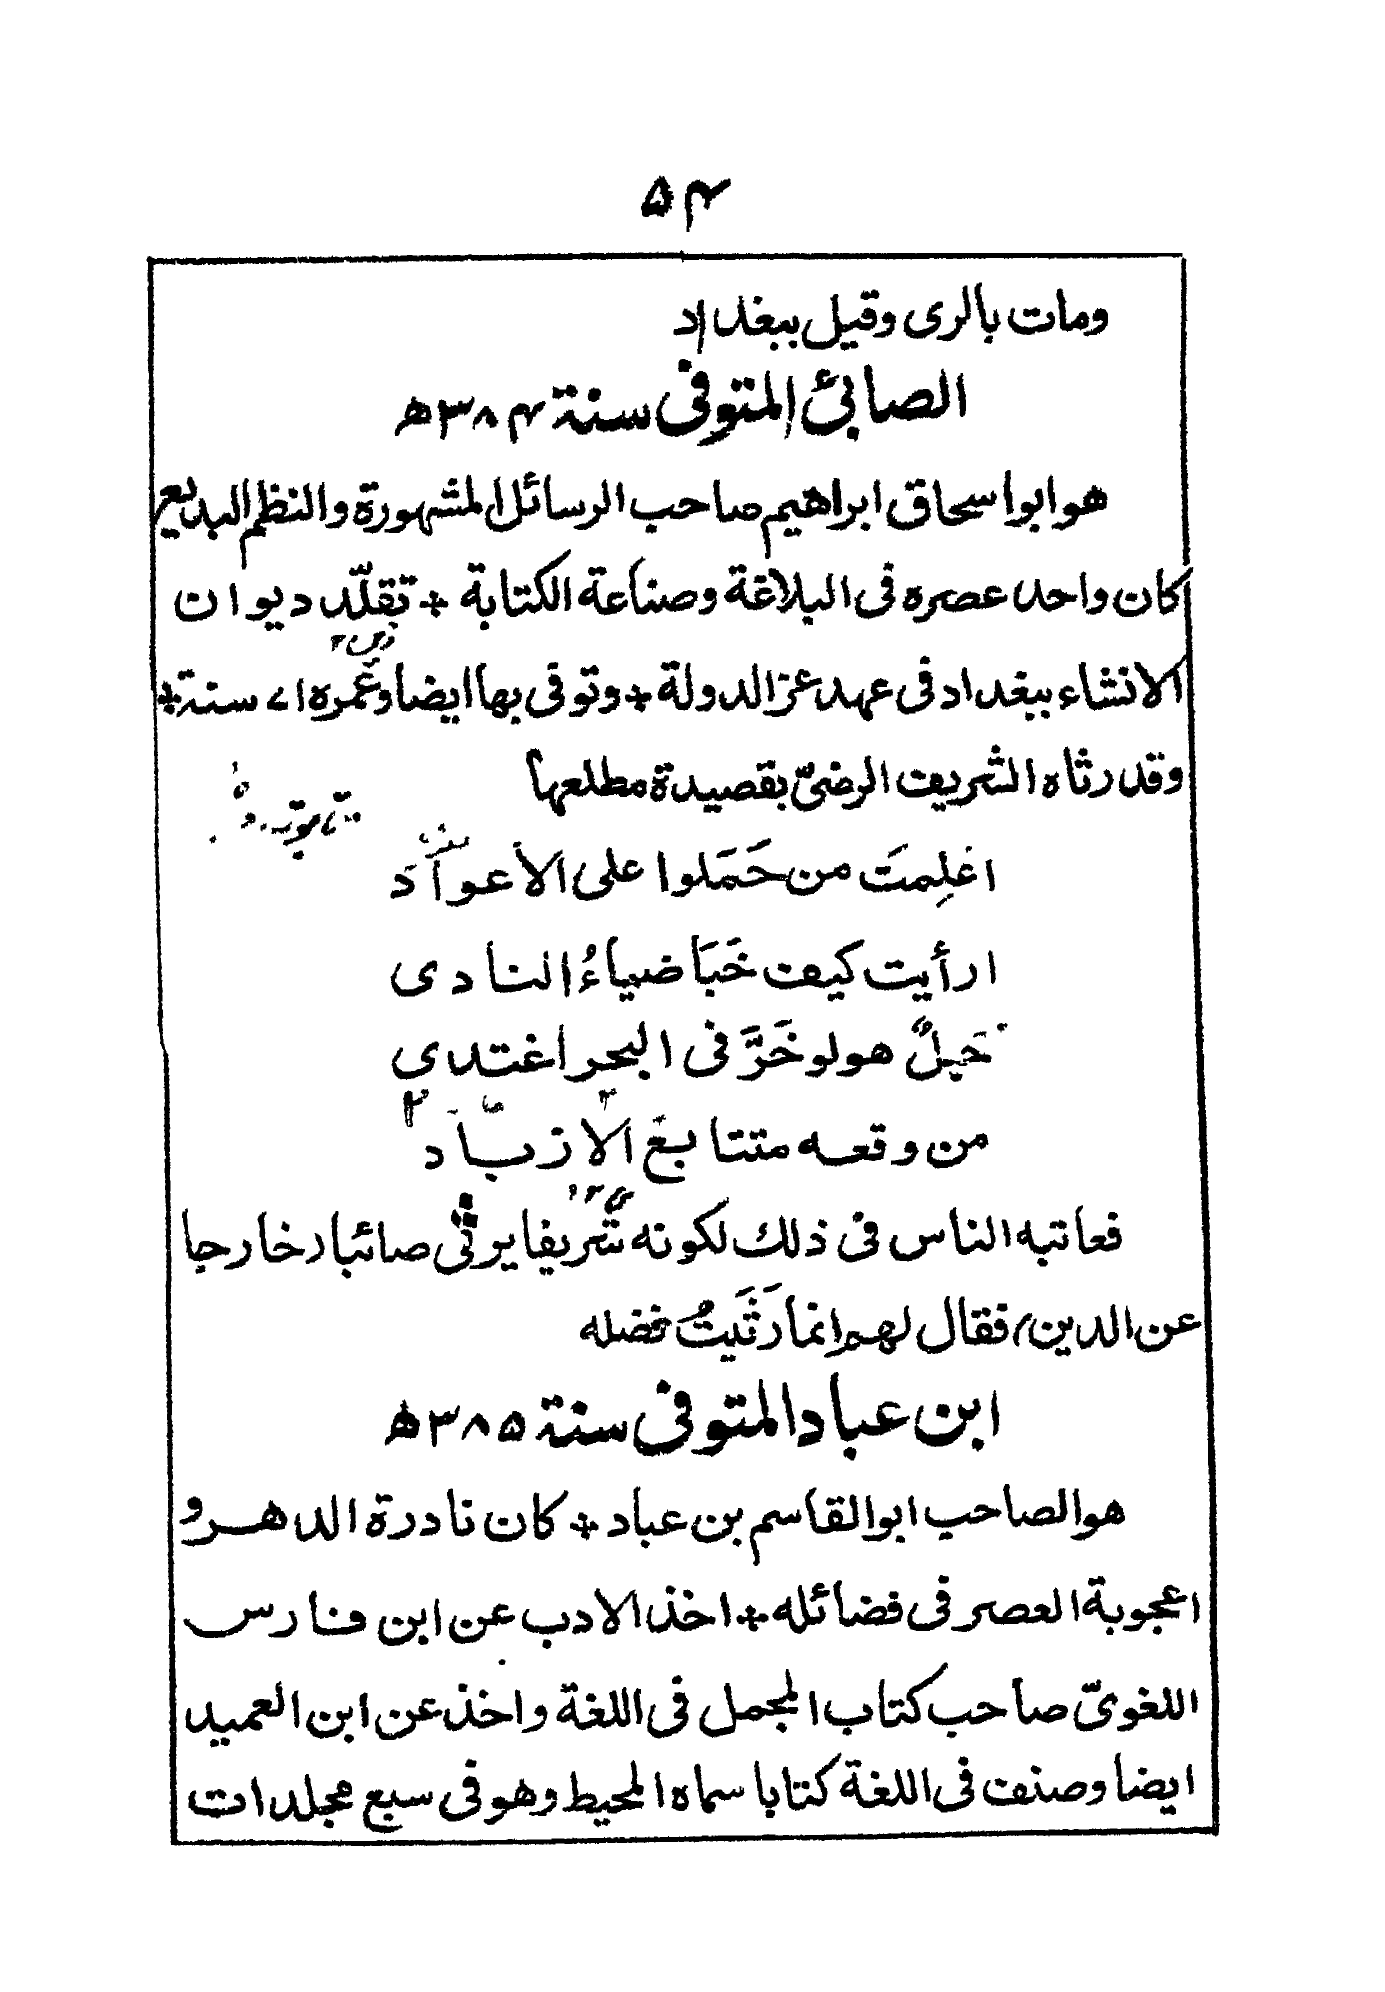 ۵۴
ومات بالری وقیل ببغداد
الصابئ المتوفی سنة ۳۸۴ھ
هو ابو اسحاق ابراهیم صاحب الرسائل المشهورة والنظم البدیع
کان واحد عصره فی البلاغة وصناعة الکتابة + تقلّد دیوان
الانشاء ببغداد فی عهد عز الدولة + وتوفی بها ایضا وعمره ۷۱ سنة +
وقد رثاه الشریف الرضیّ بقصیدة مطلعها
اعَلِمتَ من حَمَلوا علی الأعوادَ
ارأیت کیف خَبَا ضیاءُ النادی
جَبلٌ هو لو خَرَّ فی البحر اغتدی
من وقعه متتابعَ الازبَاد
فعاتبه الناس فی ذلك لکونه شریفا یرثی صائبا رخارجا
عن الدین، فقال لهم انما رَثَیتُ فضله
ابن عباد المتوفی سنة ۳۸۵ھ
هو الصاحب ابو القاسم بن عباد + کان نادرة الدهر و
اعجوبة العصر فی فضائله + اخذ الادب عن ابن فارس
اللغویّ صاحب کتاب المجمل فی اللغة واخذ عن ابن العمید
ایضا وصنف فی اللغة کتابا سماه المحیط وهو فی سبع مجلدات